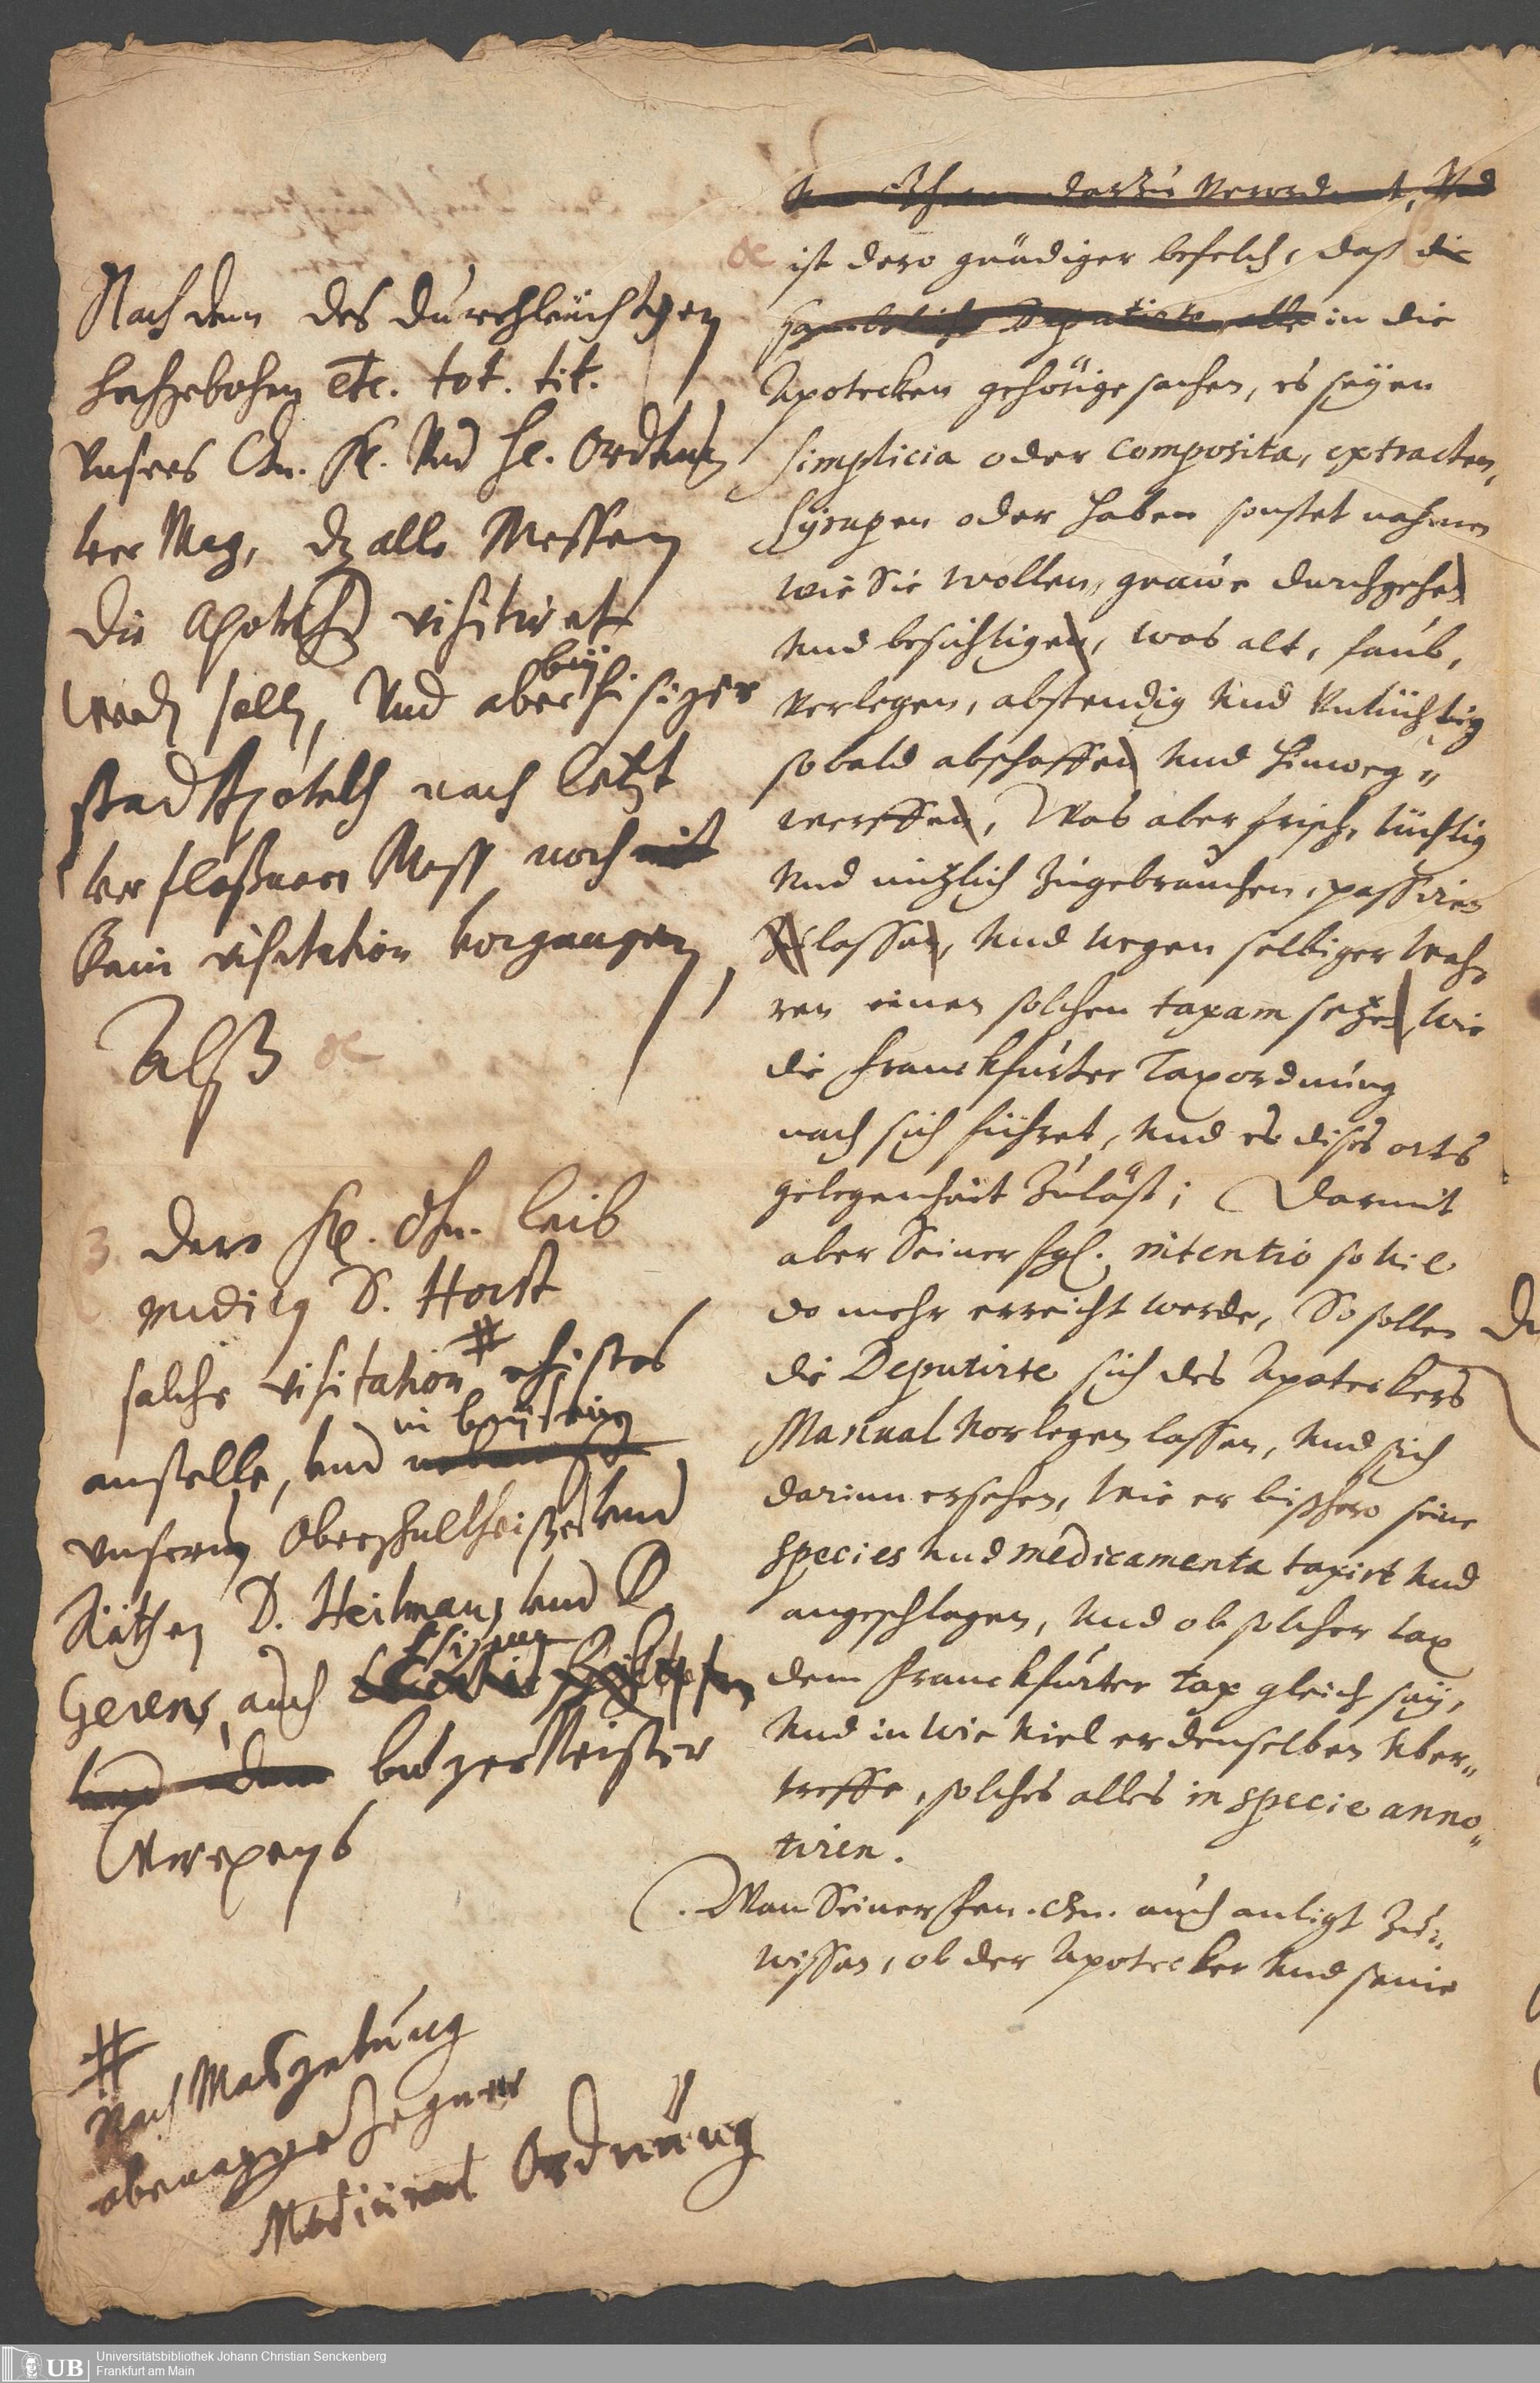 Nach dem des durchleuchtigen
hochgebohrn etc. tot. tit.
Unsers Gn. F. Und H. Ordnung
Mag, dz alle Messen
die Apoteckh visitiret
werdn solln, Und aber bey hisiger
stad Apoteckh nach letzt
verfloßener Mess noch
kein visitation vorgangen,
Alß
3 dero Fl. Gn. leib
medicq D. Horst
solche visitation # ehistes
anstelle, und in beysein
unserer Oberschultheißen und
Räthen D. Heilman, und D.
Geren, auch hisigen
burgerMeister
#
Nach Masgebung
obenangezogener
Medicinal Ordnung
darzu Verordnet, Und
ist dero gnädiger befelch, daß die
Deputirte alle in die
Apotecken gehörige sachen, es seyen
Simplicia oder Composita, extracten,
Syrupen oder haben sonstet nahmen
wie Sie wollen, genawe durchgehen
Und besichtigen, was alt, faul,
Verlegen, abstendig Und Untüchtig
sobald abschaffen Und hinweg„
werffen, Was aber frisch, tüchtig
Und nützlich zugebrauchen, passiren
lassen, Und wegen selbiger wah„
ren einen solchen taxam setzen, wie
die Franckfurter Taxordnung
nach sich führet, Und es dises orts
gelegenheit zuläst; Darmit
aber Seiner fgl. intentio so viel
do mehr erreicht werde, So sollen
die Deputirte sich des Apoteckers
Manual Vorlegen lassen, Und sich
darinn ersehen, wie er bißhero seine
species Und medicamenta taxirt Und
angeschlagen, Und ob solcher tax
dem Franckfurter tax gleich sey,
Und in wie viel er denselben Uber„
treffe, solches alles in specie anno„
tiren.
Wan Seiner Fen. Gn. auch anligt zu„
wissen, ob der Apotecker Und seine
UB Universitätsbibliothek Johann Christian Senckenberg
Frankfurt am Main